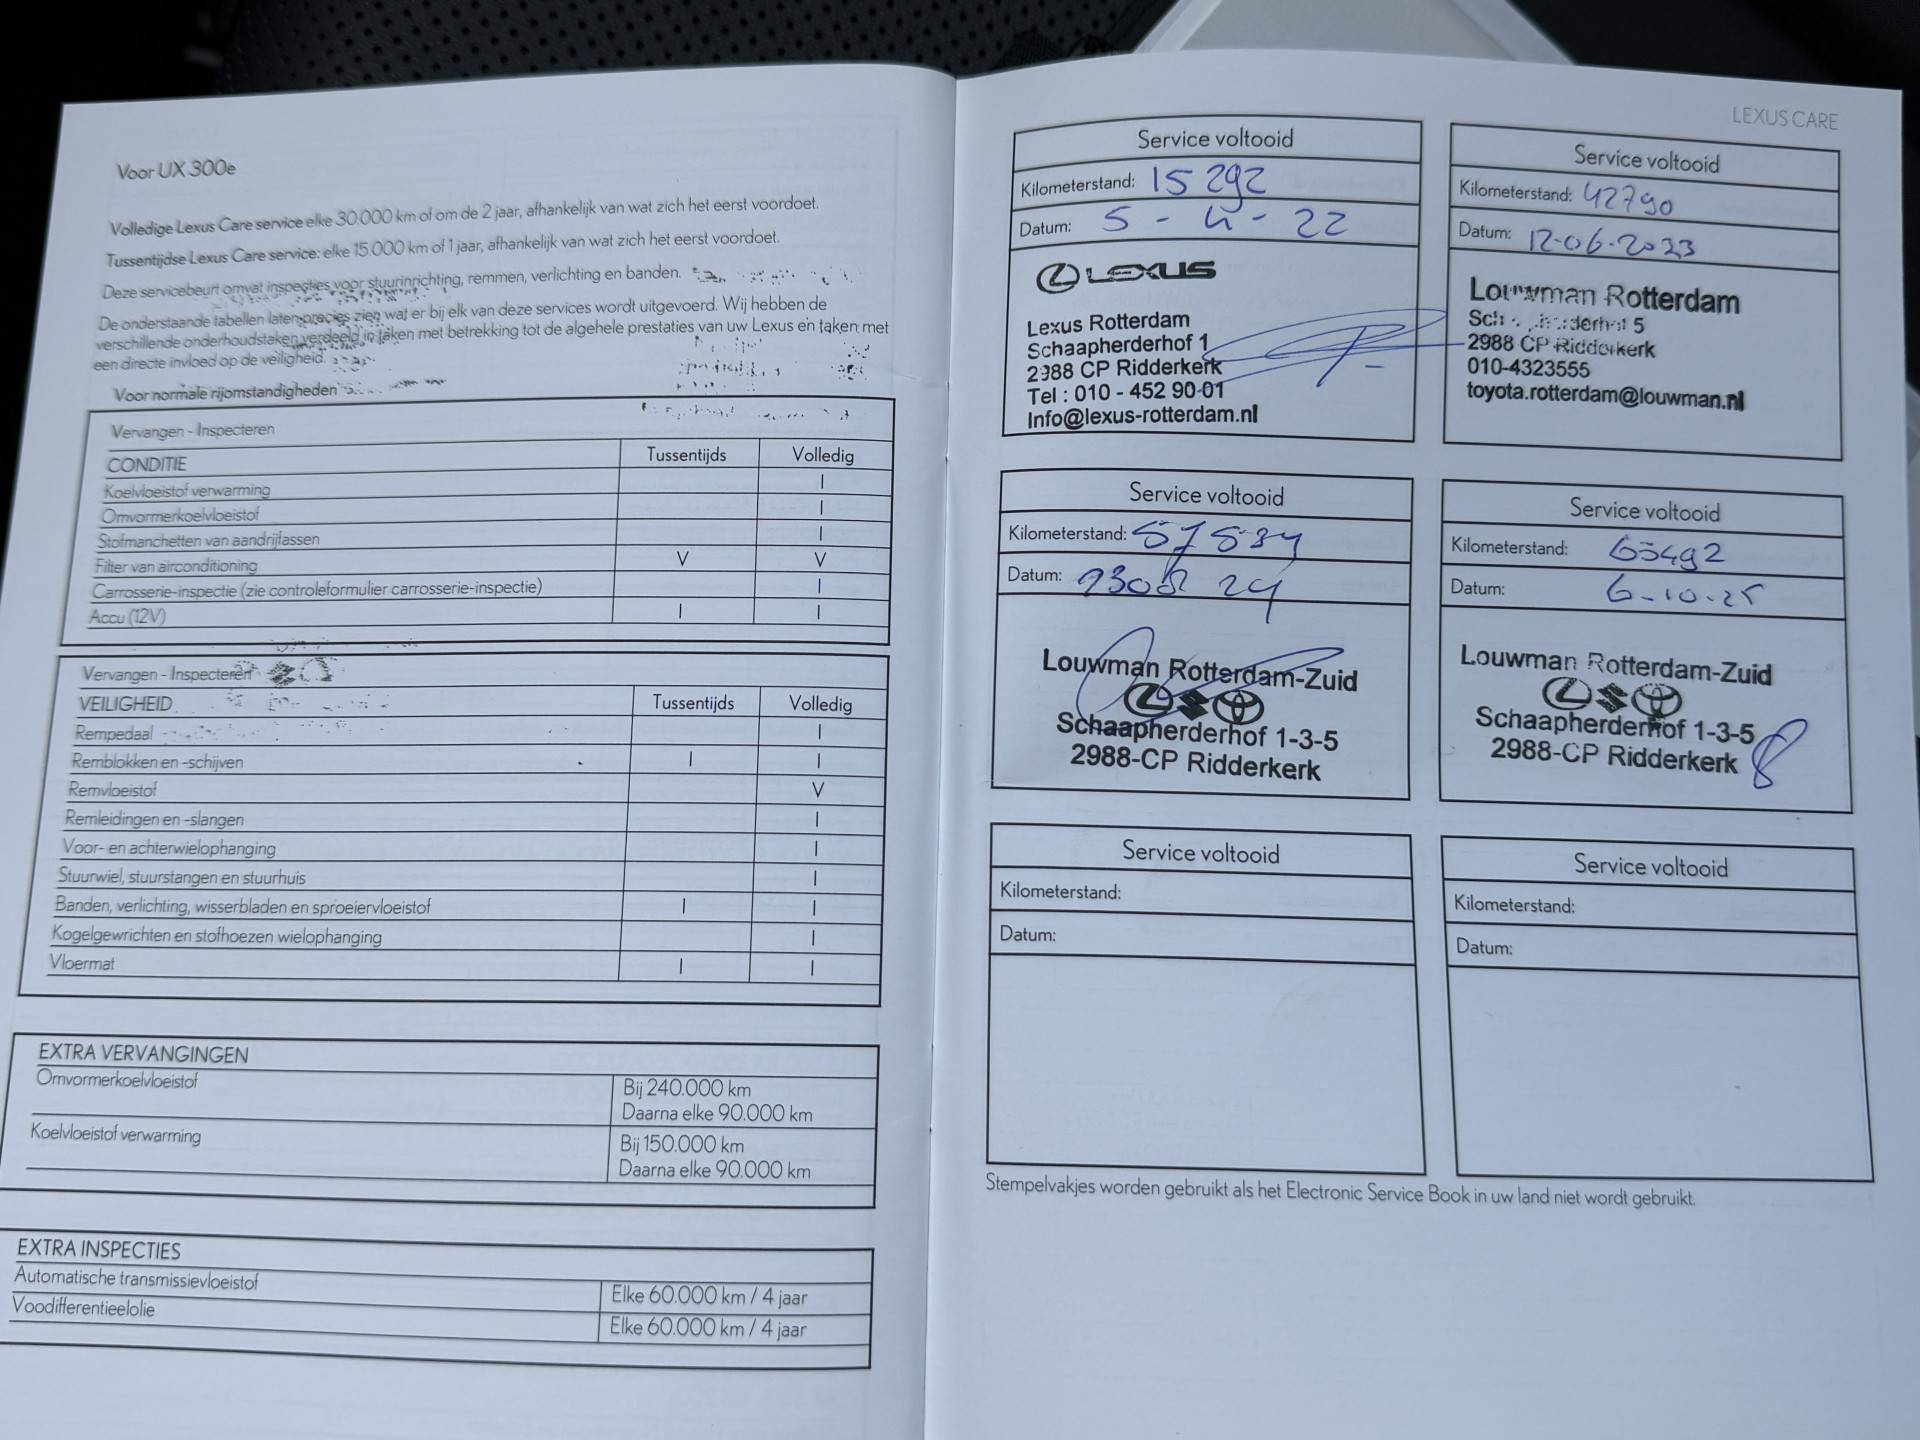 Voor UX 300e
Volledige Lexus Care service elke 30.000 km of om de 2 jaar, afhankelijk van wat zich het eerst voordoet.
Tussentijdse Lexus Care service: elke 15.000 km of 1 jaar, afhankelijk van wat zich het eerst voordoet.
Deze servicebeurt omvat inspecties voor stuurinrichting, remmen, verlichting en banden.
De onderstaande tabellen laten precies zien wat er bij elk van deze services wordt uitgevoerd. Wij hebben de
verschillende onderhoudstaken verdeeld in taken met betrekking tot de algehele prestaties van uw Lexus en taken met
een directe invloed op de veiligheid.
Voor normale rijomstandigheden
Vervangen - Inspecteren
CONDITIE Tussentijds Volledig
Koelvloeistof verwarming I
Omvormerkoelvloeistof I
Stofmanchetten van aandrijfassen I
Filter van airconditioning V V
Carrosserie-inspectie (zie controleformulier carrosserie-inspectie) I
Accu (12V) I I
Vervangen - Inspecteren
VEILIGHEID Tussentijds Volledig
Rempedaal I
Remblokken en -schijven I I
Remvloeistof V
Remleidingen en -slangen I
Voor- en achterwielophanging I
Stuurwiel, stuurstangen en stuurhuis I
Banden, verlichting, wisserbladen en sproeiervloeistof I I
Kogelgewrichten en stofhoezen wielophanging I
Vloermat I I
EXTRA VERVANGINGEN
Omvormerkoelvloeistof Bij 240.000 km
Daarna elke 90.000 km
Koelvloeistof verwarming Bij 150.000 km
Daarna elke 90.000 km
EXTRA INSPECTIES
Automatische transmissievloeistof Elke 60.000 km / 4 jaar
Voodifferentieelolie Elke 60.000 km / 4 jaar
LEXUS CARE
Service voltooid
Kilometerstand: 15 292
Datum: 5 - 4 - 22
LEXUS
Lexus Rotterdam
Schaapherderhof 1
2988 CP Ridderkerk
Tel : 010 - 452 90-01
Info@lexus-rotterdam.nl
Service voltooid
Kilometerstand: 42790
Datum: 12-06-2023
Louwman Rotterdam
5
2988 CP Ridderkerk
010-4323555
toyota.rotterdam@louwman.nl
Service voltooid
Kilometerstand: 57534
Datum: 24
Louwman Rotterdam-Zuid
Schaapherderhof 1-3-5
2988-CP Ridderkerk
Service voltooid
Kilometerstand: 65492
Datum: 6-10-25
Louwman Rotterdam-Zuid
Schaapherderhof 1-3-5
2988-CP Ridderkerk
Service voltooid
Kilometerstand:
Datum:
Service voltooid
Kilometerstand:
Datum:
Stempelvakjes worden gebruikt als het Electronic Service Book in uw land niet wordt gebruikt.